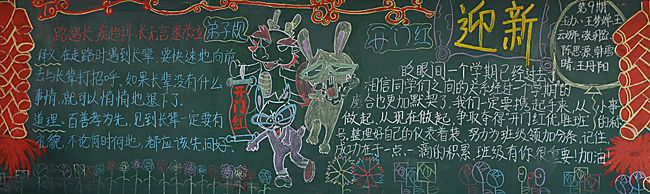 路遇长 疾趋揖 长无言 退恭立
弟子规
释义:在走路时遇到长辈,要快速地向前
去与长辈打招呼,如果长辈没有什么
事情,就可以悄悄地退下了。
道理:百善孝为先,见到长辈一定要有
礼貌,不论何时何地,都应该先问好
开门红
开门红
迎新
眨眼间一个学期已经过去了
相信同学们之间的关系经过一个学期的
磨合也更加默契了,我们一定要携起手来,从小事
做起,从现在做起,争取夺得"开门红优胜班"的称
号,整理好自己的仪表着装,努力为班级领加分条,记住
成功在于一点一滴的积累,班级有你很重要!加油!
第九期
主办:王梦婵 王
云娜 张羽
陈思源 韩雪
晴 王丹阳